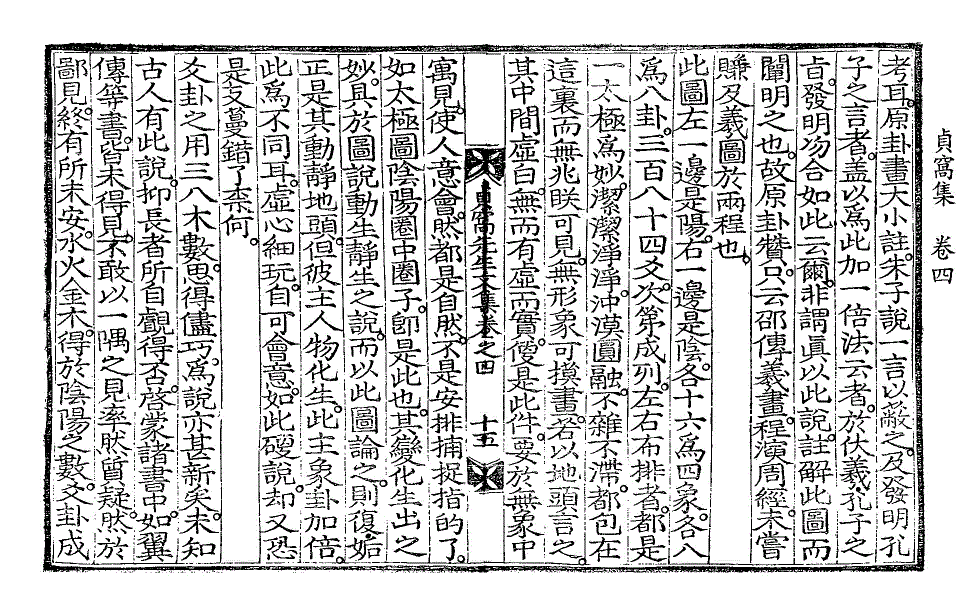 貞窩集 卷四
考耳原卦書大小註朱子說一言以蔽之及發明孔
子之言者蓋以爲此加一倍法云者於伏羲孔子之
旨發明沕合如此云爾非謂眞以此說註解此圖而
闡明之也故原卦贊只云邵傳羲畫程演周經未嘗
賺及羲圖於兩程也
此圖左一邊是陽右一邊是陰各十六爲四象各八
爲八卦三百八十四爻次第成列左右布排者都是
一太極爲妙潔潔淨淨沖漠圓融不雜不滯都包在
這裏而無兆眹可見無形象可摸畫若以地頭言之
其中間虛白無而有虛而實儘是此件要於無象中
貞窩先生文集卷之四 十五
寓見使人意會然都是自然不是安排捕捉指的了
如太極圖陰陽圈中圈子卽是此也其變化生出之
妙具於圖說動生靜生之說而以此圖論之則復姤
正是其動靜地頭但彼主人物化生此主象卦加倍
此爲不同耳虛心細玩自可會意如此硬說却又恐
是支蔓錯了柰何
爻卦之用三八木數思得儘巧爲說亦甚新矣未知
古人有此說抑長者所自覰得否啓蒙諸書中如翼
傳等書皆未得見不敢以一隅之見率然質疑然於
鄙見終有所未安水火金木得於陰陽之數爻卦成